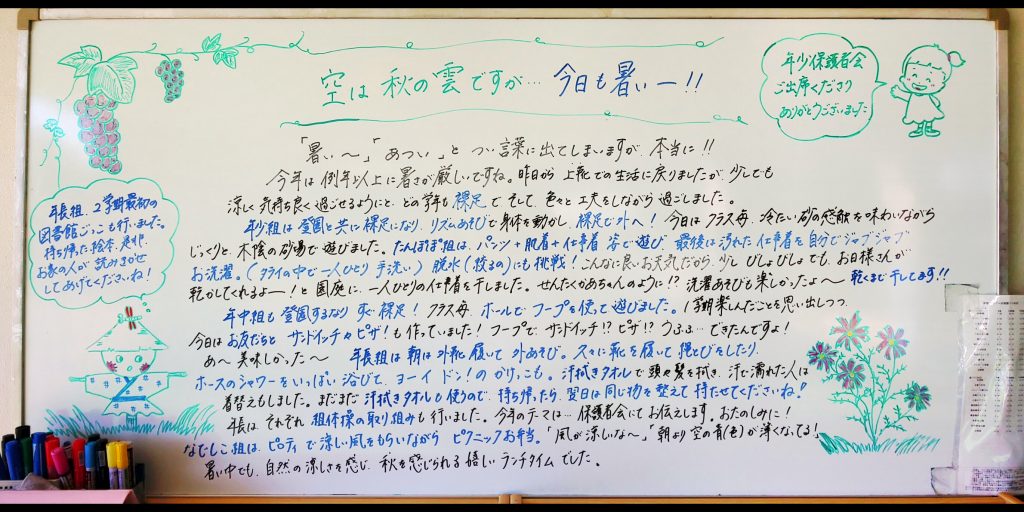 空は秋の雲ですが… 今日も暑いー!!
年少保護者会
ご出席くださり
ありがとうございました
「暑い〜」「あつい」と つい言葉に出てしまいますが、本当に!!
今年は例年以上に暑さが厳しいですね。昨日から上靴での生活に戻りましたが、少しでも
涼しく気持ち良く過ごせるようにと、どの学年も裸足で、そして、色々と工夫をしながら過ごしました。
年長組、2学期最初の
図書館ごっこも行いました。
持ち帰った絵本、是非、
お家の人が読みきかせ
してあげてくださいね!
年少組は登園と共に裸足になり、リズムあそびで身体を動かし、裸足で外へ!今日はクラス毎、冷たい砂の感触を味わいながら
じっくりと木陰の砂場で遊びました。たんぽぽ組は、パンツ+肌着+仕事着姿で遊び、最後は汚れた仕事着を自分でジャブジャブ
お洗濯。(タライの中で一人ひとり手洗い) 脱水(絞るの)にも挑戦!こんなに良いお天気だから、少しびしょびしょでも、お日様さんが
乾かしてくれるよー!と園庭に、一人ひとりの仕事着を干しました。せんたくかあちゃんのように!?洗濯あそびも楽しかったよ〜 乾くまで干してます!!
年中組も登園するなりすぐ裸足!クラス毎、ホールでフープを使って遊びました。1学期楽しんだことを思い出しつつ、
今日はお友だちとサンドイッチやピザ!も作っていました!フープで、サンドイッチ!?ピザ!?うふふ…できたんですよ!
あ〜美味しかった〜 年長組は朝は外靴履いて外あそび。久々に靴を履いて縄とびをしたり、
ホースのシャワーをいっぱい浴びて、ヨーイドン!のかけっこも。汗拭きタオルで頭や髪を拭き、汗で濡れた人は
着替えもしました。まだまだ汗拭きタオルも使うので、持ち帰ったら、翌日は同じ物を整えて持たせてくださいね!
年長は、それぞれ組体操の取り組みも行いました。今年のテーマは…保護者会にてお伝えします。おたのしみに!
なでしこ組は、ピティで涼しい風をもらいながら、ピクニックお弁当。「風が涼しいな〜」「朝より空の青(色)が薄くなってる!」
暑い中でも、自然の涼しさを感じ、秋を感じられる嬉しいランチタイムでした。